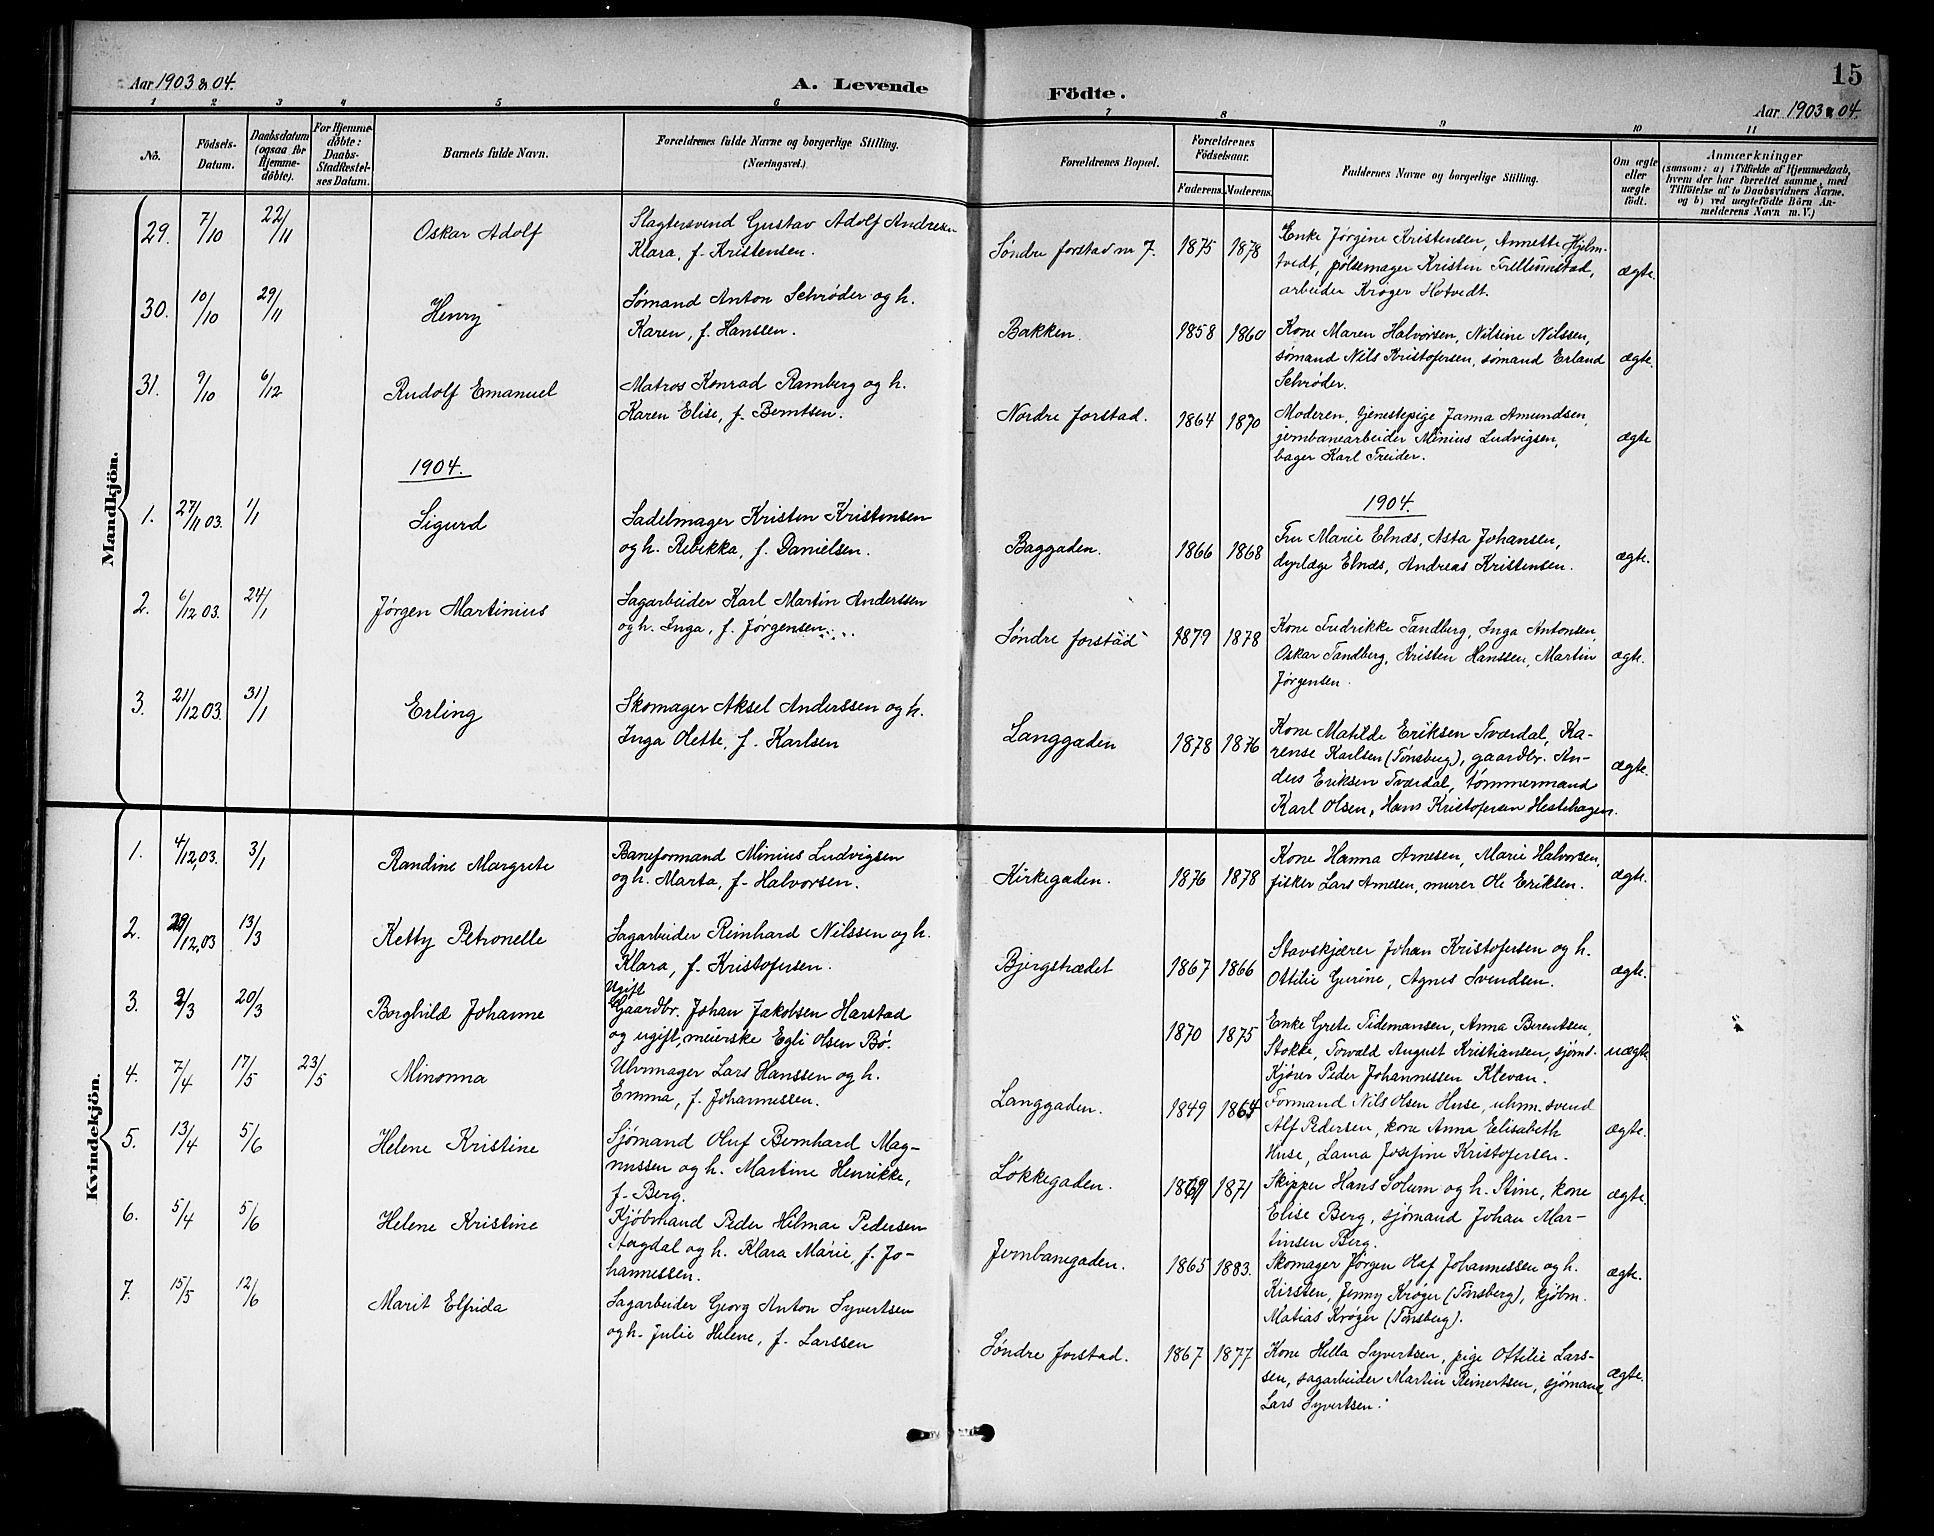 15
Aar 1903 & 04.
A. Levende
Födte.
Aar 1903 & 04.
1 2 3 4 5 6 7 8 9 10 11
No.
Födsels-
Datum.
Daabsdatum
(ogsaa for
Hjemme-
döbte).
For Hjemme-
döbte:
Daabs-
Stadfæstel-
ses Datum.
Barnets fulde Navn.
Forældrenes fulde Navne og borgerlige Stilling.
(Næringsvei.)
Forældrenes Bopæl.
Forældrenes
Födselsaar.
Faderens. Moderens.
Faddernes Navne og borgerlige Stilling.
Om ægte
eller
uægte
födt.
Anmærkninger
(saasom: a) i Tilfælde af Hjemmedaab,
hvem der har forrettet samme, med
Tilföielse af to Daabsvidners Navne.
og b) ved uægtefödte Börn An-
melderens Navn m. V.)
Mandkjön.
29. 7/10 22/11 Oskar Adolf
Slagtersvend Gustav Adolf Andresen
Klara, f. Kristensen.
Søndre forstad nr 7. 1875 1878
Enke Jørgine Kristensen, Annette Hjelm-
tvedt, pølsemager Kristen Trellumstad,
arbeider Krøger Hotvedt.
ægte.
30. 10/10 29/11 Henry
Sømand Anton Schrøder og h.
Karen, f. Hanssen.
Bakken. 1858 1860
Kone Maren Halvorsen, Nilsine Nilssen,
sømand Nils Kristofersen, sømand Erland
Schrøder.
ægte.
31. 9/10 6/12 Rudolf Emanuel
Matros Konrad Ramberg og h.
Karen Elise, f. Berntsen.
Nordre forstad. 1864 1870
Moderen, tjenestepige Janna Amundsen,
jernbanearbeider Minius Ludvigsen,
bager Karl Treider.
ægte
1904.
1904.
1. 27/11 03. 1/1 Sigurd
Sadelmager Kristen Kristensen
og h. Rebekka, f. Danielsen.
Baggaden. 1866 1868
Fru Marie Elnæs, Asta Johansen,
dyrlæge Elnæs, Andreas Kristensen.
ægte.
2. 6/12 03. 24/1 Jørgen Martinius
Sagarbeider Karl Martin Anderssen
og h. Inga, f. Jørgensen
Søndre forstad 1879 1878
Kone Fredrikke Tandberg, Inga Antonsen,
Oskar Tandberg, Kristen Hanssen, Martin
Jørgensen.
ægte.
3. 21/12 03. 31/1 Erling
Skomager Aksel Anderssen og h.
Inga Olette, f. Karlsen
Langgaden 1878 1876
Kone Matilde Eriksen Tværdal, Ka-
rense Karlsen (Tønsberg), gaardbr. An-
ders Eriksen Tværdal, tømmermand
Karl Olsen, Hans Kristofersen Hestehagen.
ægte.
Kvindekjön.
1. 4/12,03. 3/1 Randine Margrete
Baneformand Minius Ludvigsen
og h. Marta, f. Halvorsen.
Kirkegaden. 1876 1878
Kone Hanna Arnesen, Marie Halvorsen,
fisker Lars Arnesen, murer Ole Eriksen.
ægte.
2. /12,03 13/3 Ketty Petronelle
Sagarbeider Reinhard Nilssen og h.
Klara, f. Kristofersen.
Bjergstrædet 1867 1866
Stavskjærer Johan Kristofersen og h.
Ottilie Gurine, Agnes Svendsen.
ægte.
3. /3 20/3 Borghild Johanne
Ugift
Gaardbr. Johan Jakobsen Harstad
og ugift, meierske Egli Olsen Bø.
1870 1875
Enke Grete Tidemansen, Anna Berentsen,
Stokke, Torvald August Kristiansen, sjøms-
Kjøver Peder Johannessen Klevan.
uægte
4. 7/4 17/5 23/5 Minonna
Uhrmager Lars Hanssen og h.
Emma, f. Johannessen.
Langgaden. 1849 1864
Formand Nils Olsen Huse, uhrm. svend
Alf Pedersen, kone Anna Elisabeth
Huse, Laura Josefine Kristofersen.
ægte.
5. 13/4 5/6 Helene Kristine
Sjømand Oluf Bernhard Mag-
nussen og h. Martine Henrikke,
f. Berg.
Løkkegaden. 1869 1871
Skipper Hans Solum og h. Stine, kone
Elise Berg, sjømand Johan Mar-
tinsen Berg.
ægte.
6. 5/4 5/6 Helene Kristine
Kjøbmand Peder Hilmar Pedersen
Stagdal og h. Klara Marie, f. Jo-
hannessen.
Jernbanegaden. 1865 1883.
Skomager Jørgen Olaf Johannessen og h.
Kirsten, Jenny Krøger (Tønsberg), kjøbm.
Matias Krøger (Tønsberg).
ægte.
7. 15/5 12/6 Marit Elfrida
Sagarbeider Georg Anton Syvertsen
og h. Julie Helene, f. Larssen
Søndre forstad. 1867 1877
Kone Hella Syvertsen, pige Ottilie Lars-
sen, sagarbeider Martin Reinertsen, sjømand
Lars Syvertsen.
ægte.